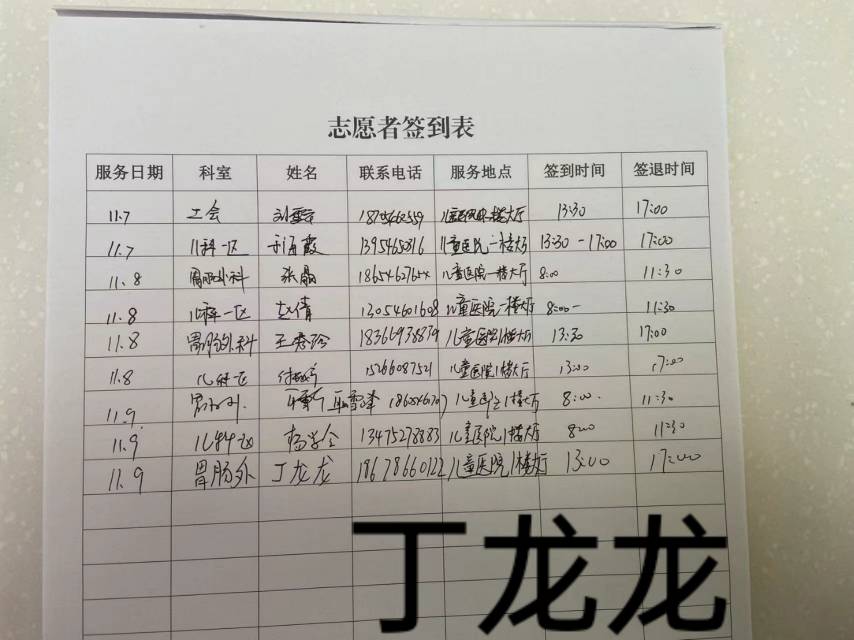 志愿者签到表
服务日期 科室 姓名 联系电话 服务地点 签到时间 签退时间
11.7 工会 一楼大厅 13:30 17:00
11.7 儿科一区 于海霞 儿童医院一楼大厅 13:30-17:00 17:00
11.8 胃肠外科 张晶 儿童医院一楼大厅 8:00 11:30
11.8 儿科一区 赵倩 13054601608 儿童医院一楼大厅 8:00- 11:30
11.8 胃肠外科 18366938879 儿童医院1楼大厅 13:30 17:00
11.8 儿科一区 15266087521 儿童医院1楼大厅 13:00 17:00
11.9. 儿童医院1楼大厅 8:00. 11:30
11.9 儿科 13475278883 儿童医院1楼大厅 8:00 11:30
11.9 胃肠外 丁龙龙 18678660122 儿童医院1楼大厅 13:00 17:00
丁龙龙